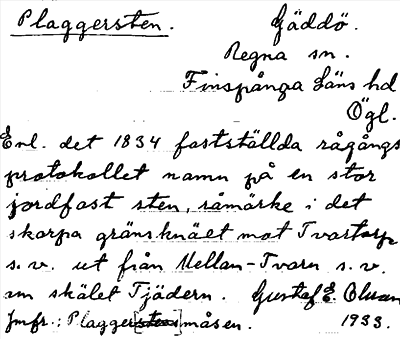 Plaggersten. Gäddö.
Regna sn.
Finspånga läns hd
Ögl.
Enl. det 1834 fastställda rågångs
protokollet namn på en stor
jordfast sten, råmärke i det
skarpa gränsknäet mot Tvartorp
s.v. ut från Mellan-Tvarn s.v.
om skälet Tjädern. Gustaf E. Olsson
Jmfr.: Plagger[sten]måsen. 1933.